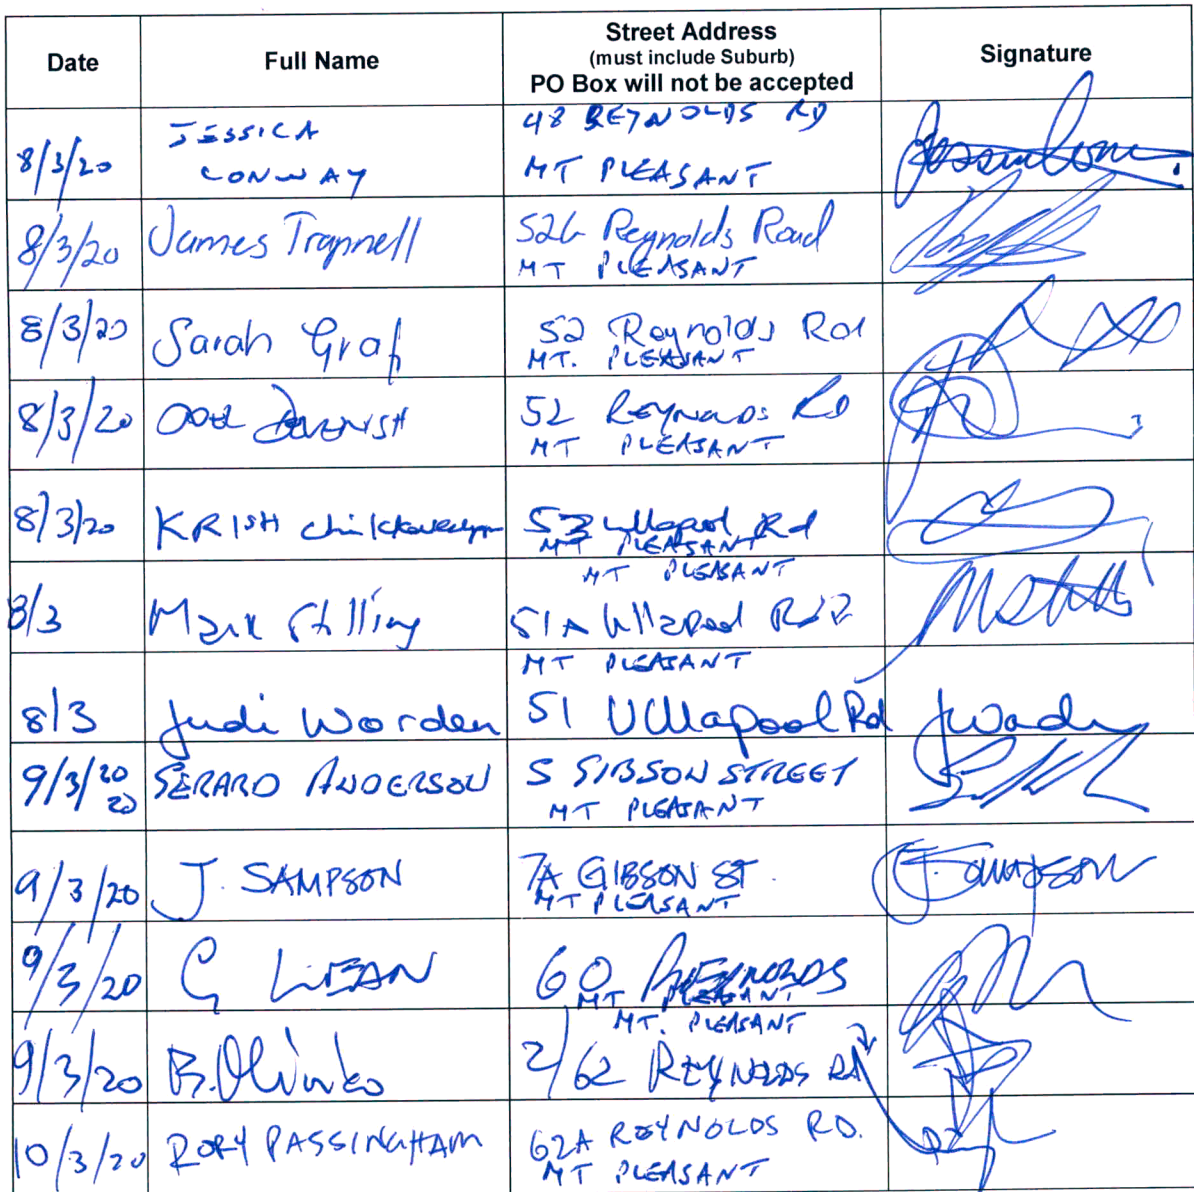 Date
Full Name
Street Address
(must include Suburb)
PO Box will not be accepted
Signature
8/3/20
JESSICA
CONWAY
48 REYNOLDS RD
MT PLEASANT
8/3/20
James Trapnell
52b Reynolds Road
MT PLEASANT
8/3/20
Sarah Graf
52 Reynolds Rd
MT. PLEASANT
8/3/20
DEVENISH
52 REYNOLDS RD
MT PLEASANT
8/3/20
KRISH
53 Ullapool Rd
MT PLEASANT
8/3
Mark Stilling
MT PLEASANT
51A Ullapool Rd
8/3
Judi Worden
MT PLEASANT
51 Ullapool Rd
9/3/20
20
GERARD ANDERSON
5 GIBSON STREET
MT PLEASANT
9/3/20
J. SAMPSON
7A GIBSON ST.
MT PLEASANT
J. Sampson
9/3/20
G
60 REYNOLDS
MT PLEASANT
9/3/20
MT. PLEASANT
2/62 REYNOLDS RD
10/3/20
RORY PASSINGHAM
62A REYNOLDS RD.
MT PLEASANT